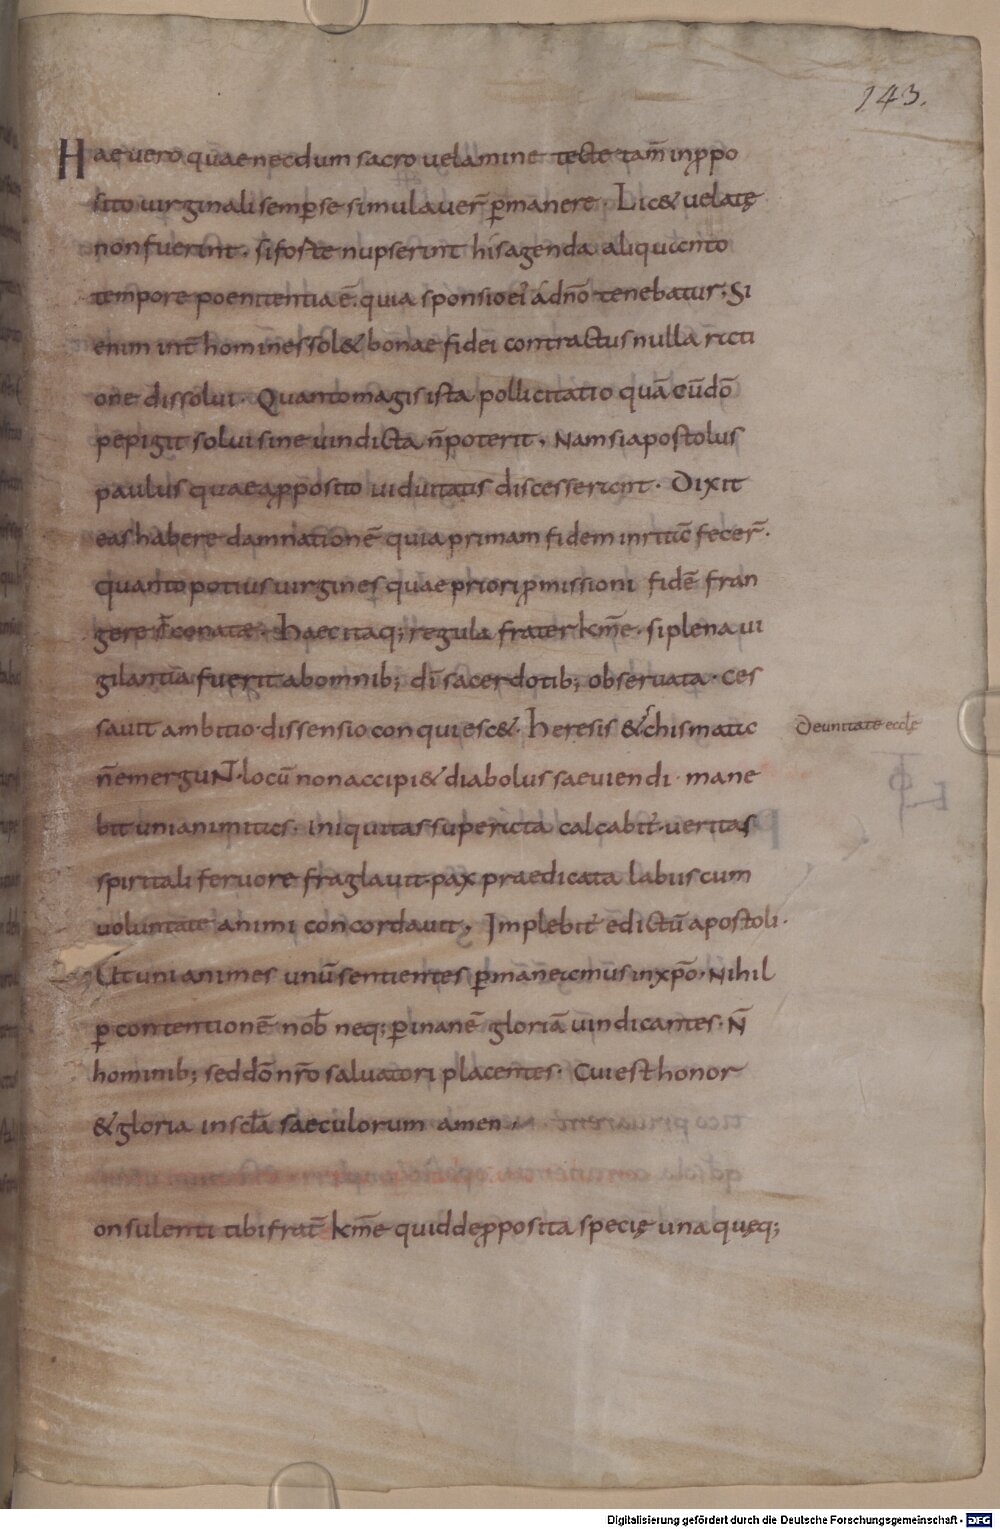 143.
Hae vero quae necdum sacro velamine tectę tam̄ inꝓpo
sito virginali semꝑ se simulaver̄ ꝑmanere. Lic& velatę
non fuerint. si forte nupserint his agenda aliquanto
tempore poenitentia ē. quia sponsio ei' a dn̄o tenebatur; Si
enim int̄ homines sol& bonae fidei contractus nulla rati
one dissolui. Quanto magis ista pollicitatio quā cū dō
pepigit solui sine vindicta n̄ poterit. Nam si apostolus
paulus quae a ꝓposito viduitatis discesserant. Dixit
eas habere damnationē quia primam fidem irritā fecer̄.
quanto potius virgines quae priori ꝓmissioni fidē fran
gere s̄t conatae. Haec itaq; regula frater km̄e. si plena vi
gilantia fuerit ab omnib; dī sacerdotib; observata. Ces
savit ambitio. dissensio conquiesc&. Heresis & schismata
n̄ emergunt. locū non accipi& diabolus saeviendi. mane
bit unianimitas. iniquitas superata calcabit'. veritas
spiritali fervore fraglavit. pax praedicata labiis cum
voluntate animi concordavit. Implebit' edictū apostoli.
Ut unianimes unū sentientes ꝑmaneamus in xp̄o. Nihil
ꝑ contentionē nob̄ neq; ꝑ inanē gloriā vindicantes. N̄
hominib; sed dō nr̄o salvatori placentes. Cui est honor
& gloria in scl̄a saeculorum amen.
onsulenti tibi frat̄ km̄e quid de ꝓposita specię una quęq;
De unitate eccl̄ę
Digitalisierung gefördert durch die Deutsche Forschungsgemeinschaft - DFG